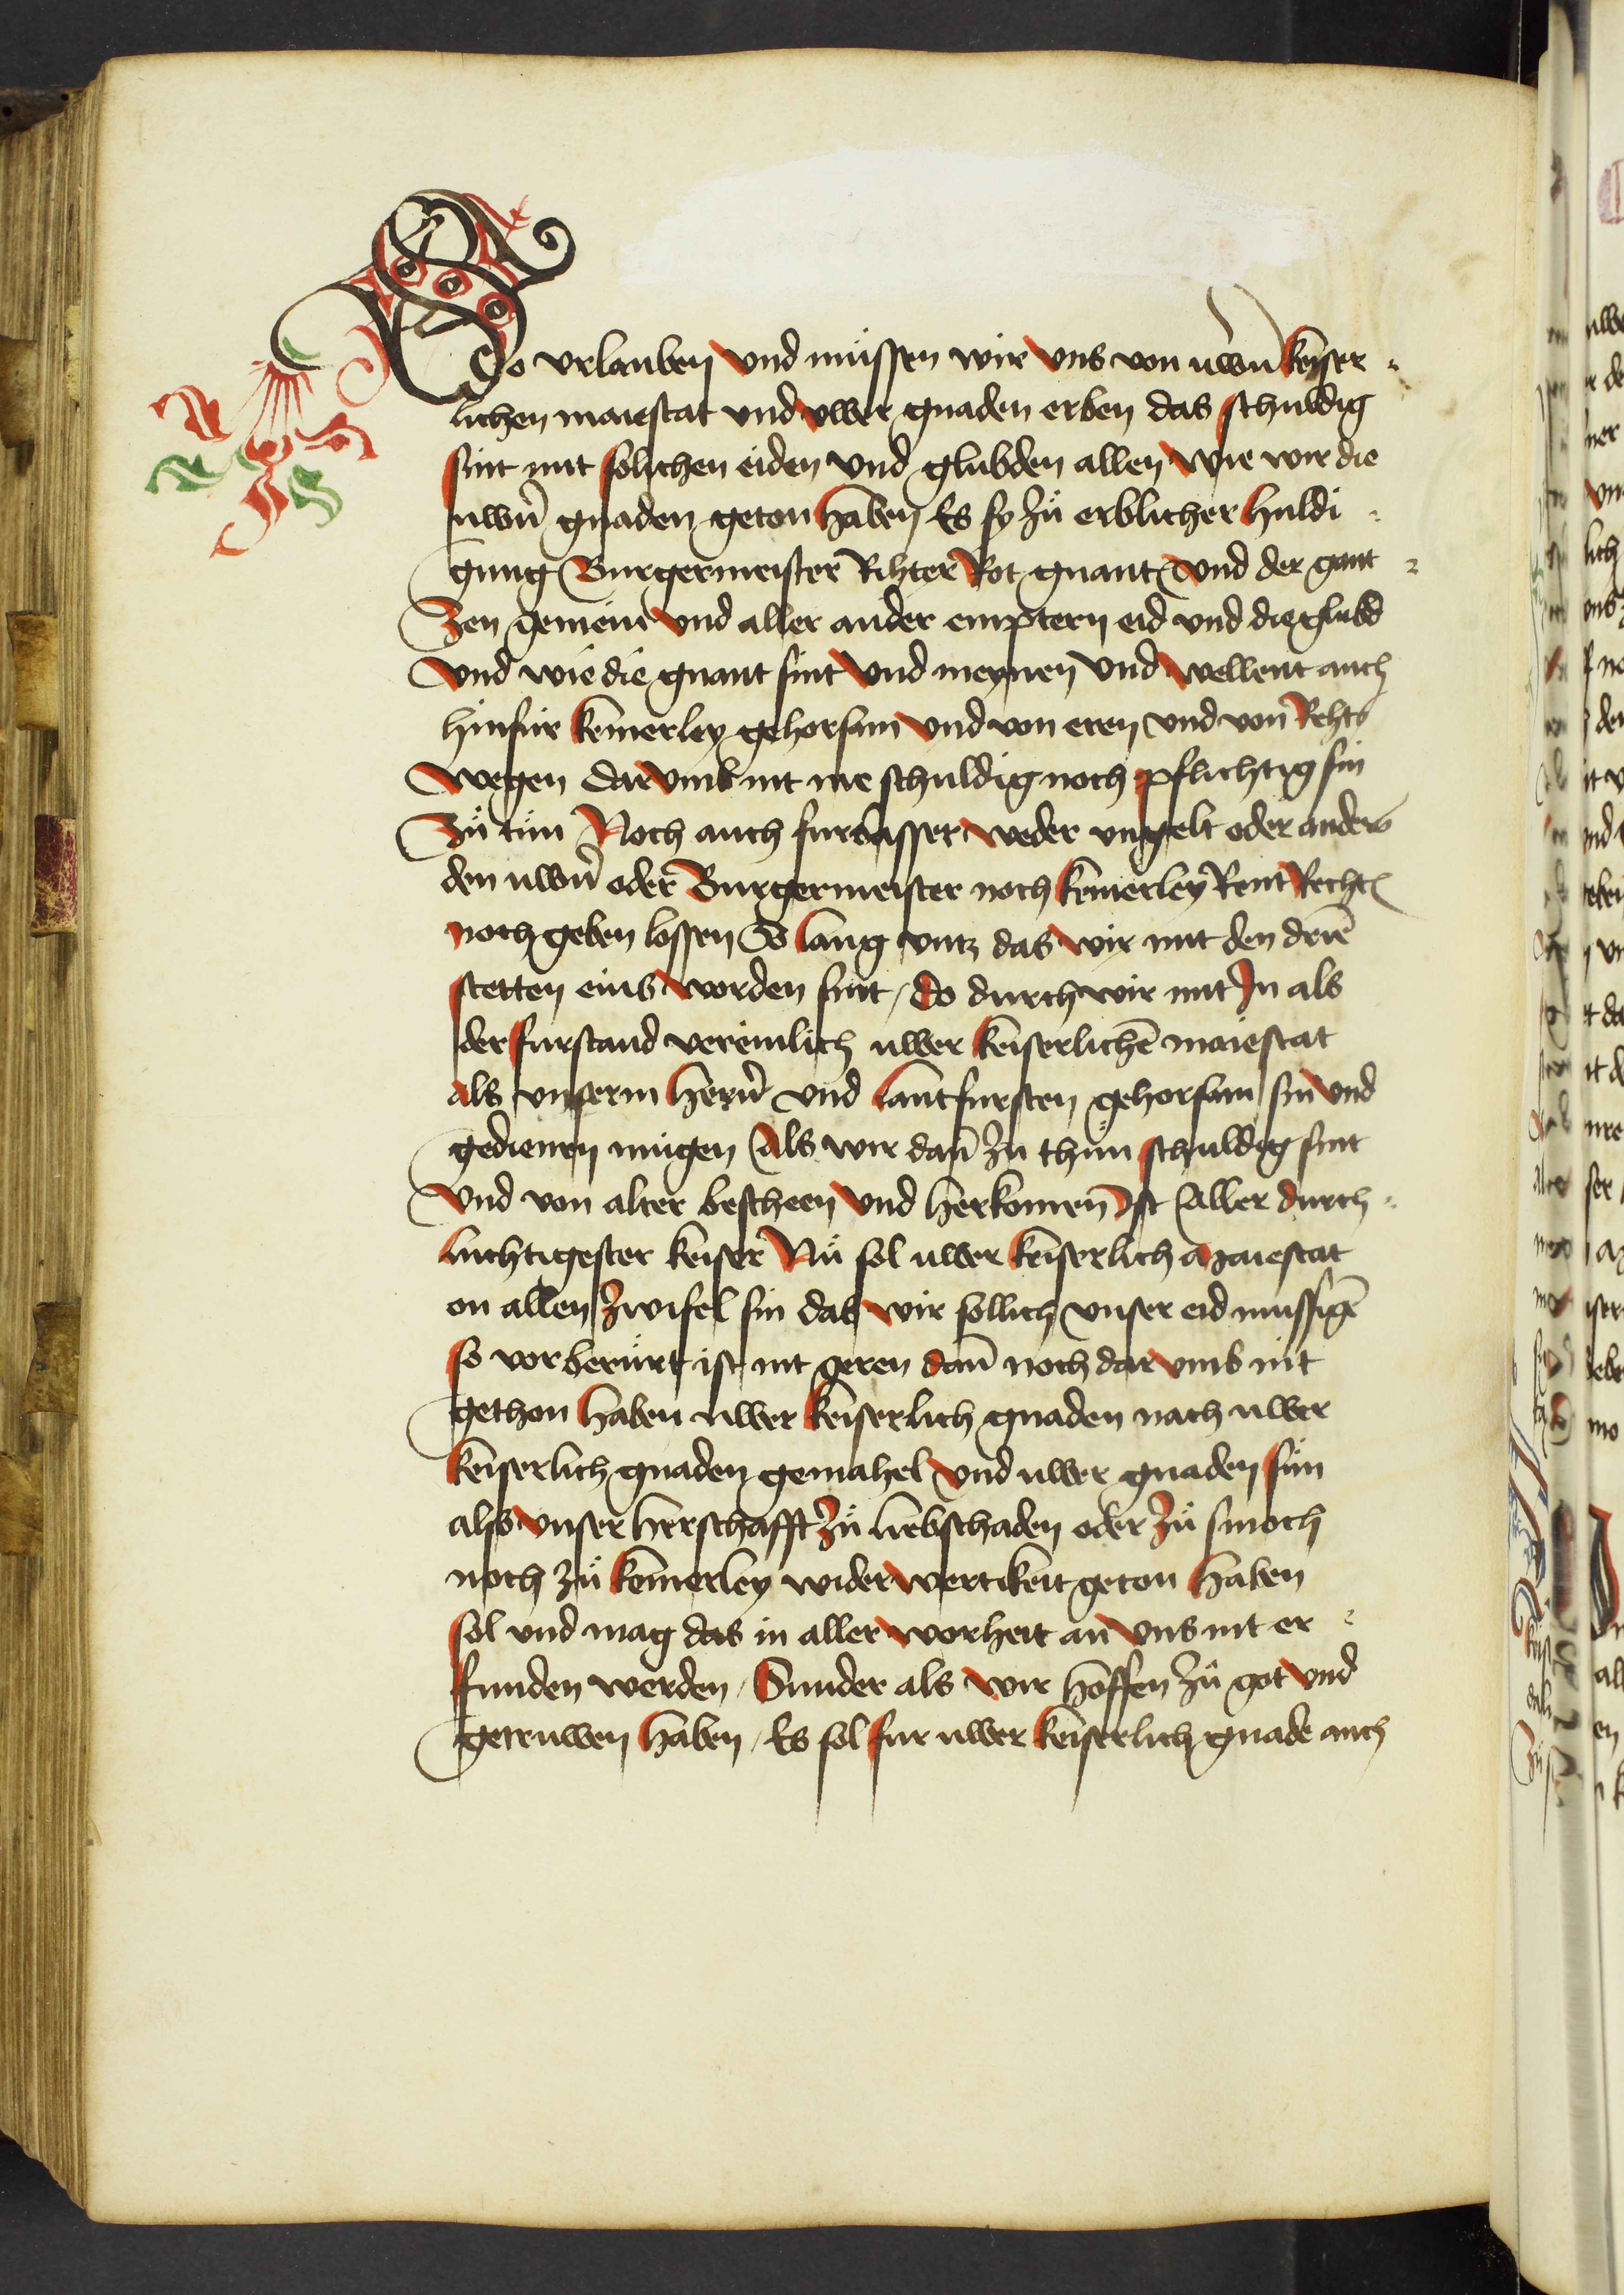 So vrlauben vnd müssen wir vns von uwern̄ keiser
lichen maiestat vnd vwer gnaden erben das schuldig
sint mit solichen eiden vnd glubden allen wie wir die
uwern̄ gnaden geton haben / Es sy zů erblicher huldi
gung Burgermeister Rihter Rot gnant vnd der gant
zen gemein vnd aller ander emptern eid vnd die glubd
vnd wie die gnant sint vnd meynen vnd wellent auch
hinfur keinerley gehorsam vnd von eren vnd von Rehts
wegen darvmb nit me schuldig noch pflichtig sin
Zů tůn Noch auch furbasser weder vngelt oder anders
den uwern̄ oder Burgermeister noch keinerley Rent Recht
noch geben lossen So lang vntz das wir mit den drīe
stetten eins worden sint / do durch wir mit In als
der furstand vereinlich uwer keiserlichē maiestat
als vnserm hern̄ vnd lantfursten gehorsam sin vnd
gedienen mugen Als wir dan̄ zu thun schuldig sint
vnd von alter bescheen vnd herkomen Ist Aller durch
luchtigester keiser Nů sol uwer keiserlich Maiestat
on allen zwifel sin das wir sollich vnser eid mussigē
so vorberürt ist nit geren dan̄ noch dar vmb nit
gethon haben uwer keiserlich gnaden nach uwer
keiserlich gnaden gemahel vnd uwer gnaden sün
also vnser herschafft zů liebschaden oder zů smoch
noch zů keinerley widerwertikeit geton haben
sol vnd mag das in aller worheit an vns nit er
funden werden / Sunder als wir hoffen zů got vnd
getruwen haben / Es sol fur uwer keiserlich gnade auch